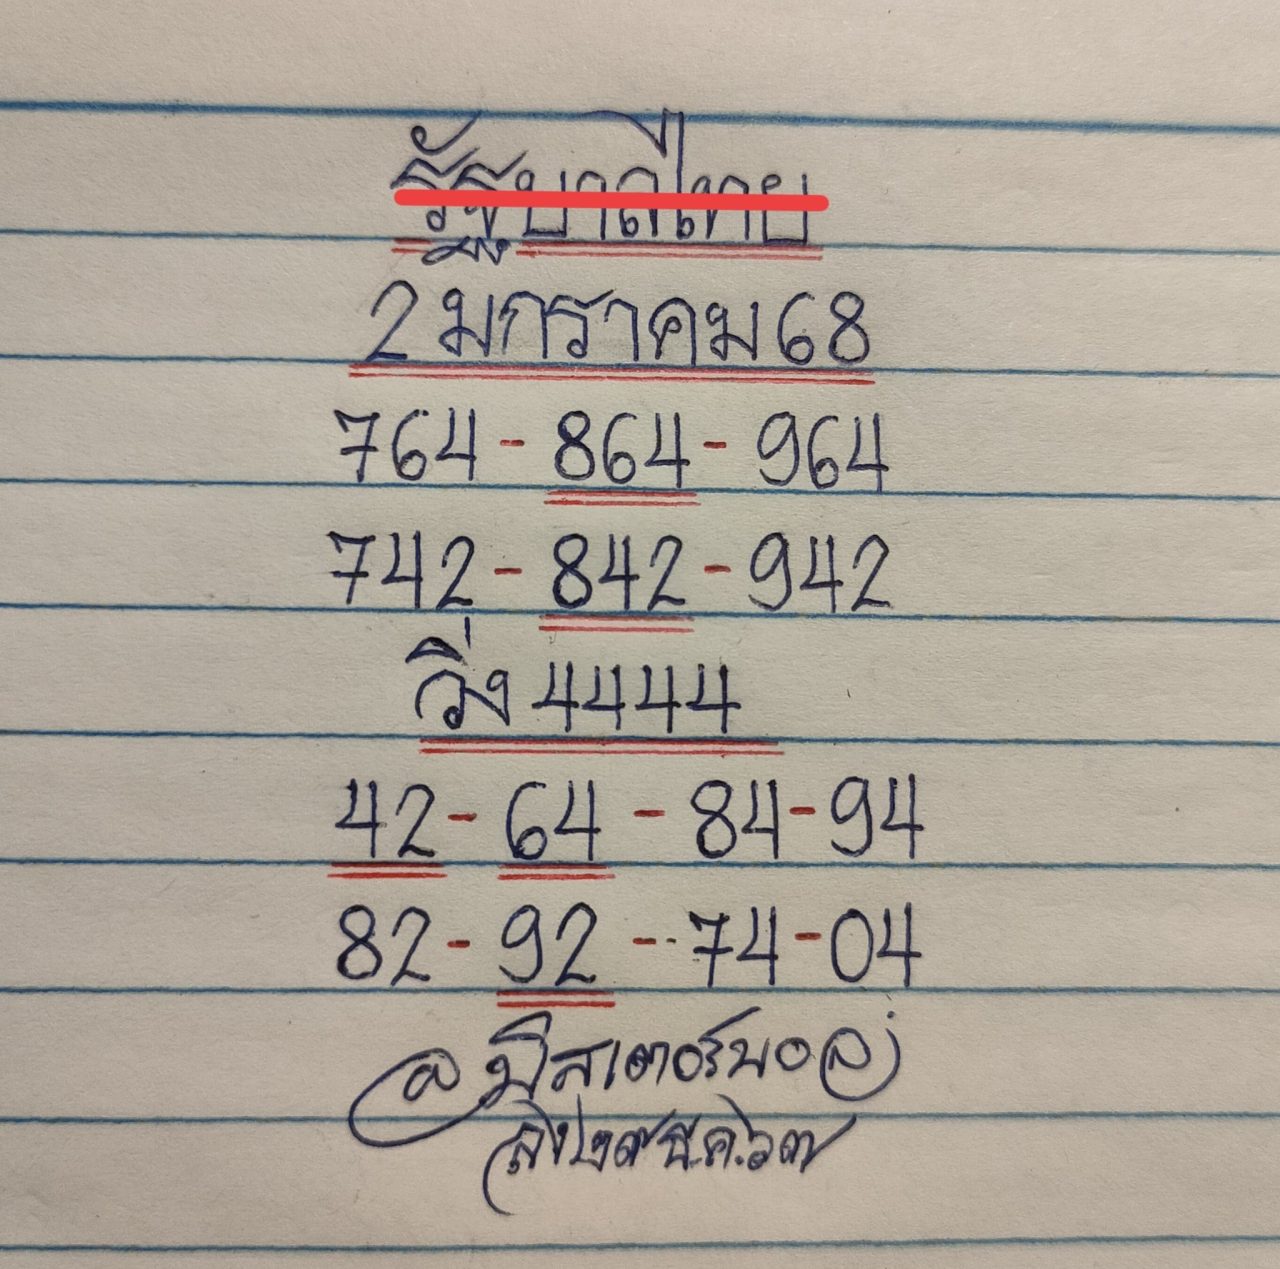 รัฐบาลไทย
2 มกราคม 68
764 - 864 - 964
742 - 842 - 942
วิ่ง 4444
42 - 64 - 84 - 94
82 - 92 - 74 - 04
@มิสเตอร์บอล
ธ.ค. ๖๗